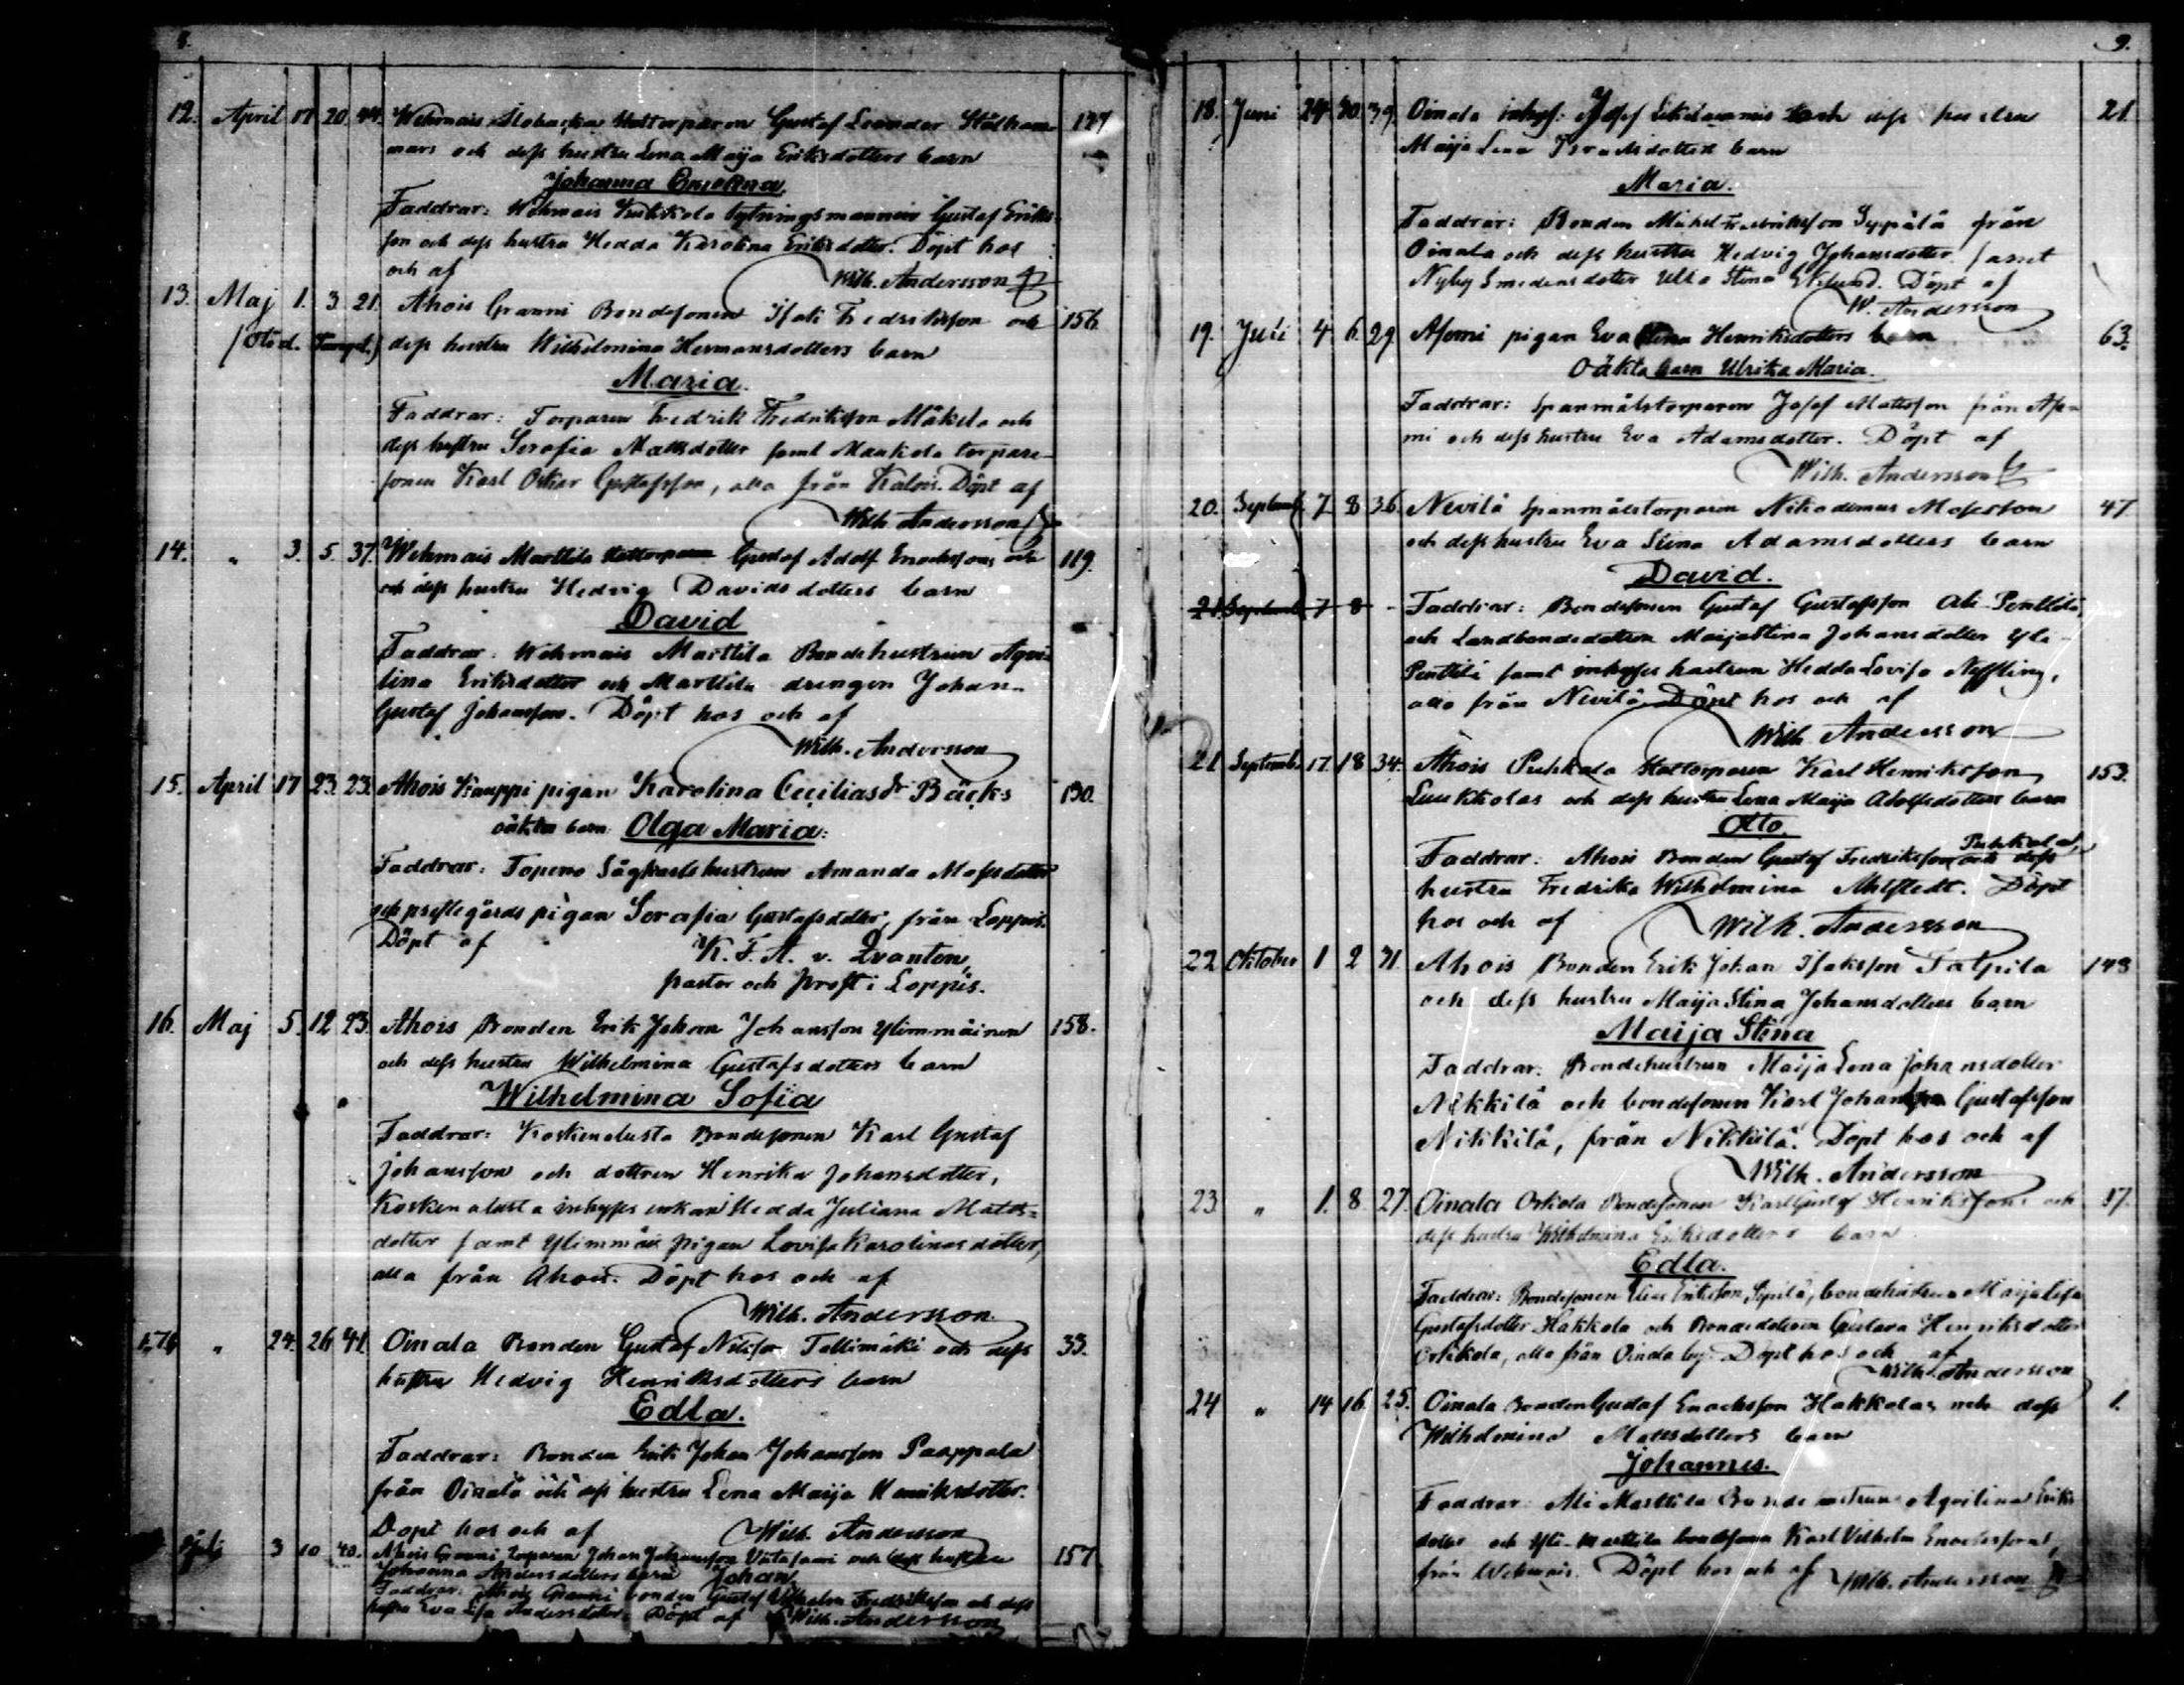 8.
12. April 17 20 44. Wehmais Gustaf Leander
mars och dess hustru Lena Maija Eriksdotters barn 147
Johanna
Faddrar: Wehmais Gustaf Eriks-
son och dess hustru Hedda Karolina Eriksdotter. Döpt hos
och af Wilh. Andersson
13. Maj 1. 3 21. Ahois Granni Bondesonen Isak Fredriksson och 156
dess hustru Wilhelmina Hermansdotters barn
Maria.
Faddrar: Torparen Fredrik Fredriksson Mäkelä och
dess hustru Serafia Mattsdotter samt torpare-
sonen Karl Oskar Gustafsson, alla från Kalois. Döpt af
Wilh Andersson
14. " 3. 5. 37. Wehmais Marttila Gustaf Adolf Enochssons och 119.
och dess hustru Hedvig Davidsdotters barn
David
Faddrar: Wehmais Marttila Bondehustrun Aqvi-
lina Eriksdotter och Marttila drengen Johan
Gustaf Johansson. Döpt hos och af
Wilh. Andersson
15. April 17 23. 23. Ahois Kauppi pigan Karolina Ceciliasdr Bäcks 130.
oäkta barn Olga Maria:
Faddrar: Topeno Sågkarlshustrun Amanda
och prestegårds pigan Serafia Gustafsdotter, från Loppis.
Döpt af K. F. A. v. Qvanten,
pastor och prost i Loppis.
16. Maj 5. 12 23. Ahois Bonden Erik Johan Johansson Ylimmäinen 158.
och dess hustru Wilhelmina Gustafsdotters barn
Wilhelmina Sofia
Faddrar: Koskenalusta Bondesonen Karl Gustaf
Johansson och dottren Henrika Johansdotter,
Koskenalusta inhyses enkan Hedda Juliana Matts-
dotter samt pigan Lovisa Karolinasdotter,
alla från Ahois. Döpt hos och af
Wilh. Andersson.
" 24. 26 41. Oinala Bonden Gustaf Nilsson Tallimäki och dess 33.
hustru Hedvig Henriksdotters barn
Edla.
Faddrar: Bonden Erik Johan Johansson Paappala
från Oinala och dess hustru Lena Maija Henriksdotter.
Döpt hos och af Wilh. Andersson
3 10 40. Ahois Granni torparen Johan Johansson och dess hustru 157.
Johanna Andersdotters barn Johan
Faddrar: Ahois Granni bonden Gustaf Wilhelm Fredriksson och dess
hustru Eva Lisa Andersdotter. Döpt af Wilh. Andersson
9.
18. Juni 24 30. 39. Oinala inhys. Josef och dess hustru 21.
Maija Lena Israelsdotters barn
Maria.
Faddrar: Bonden Mikel Fredriksson Seppälä från
Oinala och dess hustru Hedvig Johansdotter samt
Nyby Smedensdotter Ulla Stina Eklund. Döpt af
W. Andersson
19. Juli 4 6. 29. pigan Eva Stina Henriksdotters barn 63.
Oäkta barn Ulrika Maria.
Faddrar: Spanmålstorparen Josef Mattsson från
mi och dess hustru Eva Adamsdotter. Döpt af
Wilh. Andersson
20. Septemb. 7 8 36. Nevilä Spanmålstorparen Nikodemus Mosesson 47
och dess hustru Eva Stina Adamsdotters barn
David.
21. Septemb 7 8 - Faddrar: Bondesonen Gustaf Gustafsson Ali-Penttilä,
och Landbondedottren Maija Stina Johansdotter Yli-
Penttilä samt inhyses hustrun Hedda Lovisa
alla från Nevilä. Döpt hos och af
Wilh. Andersson
21 Septemb. 17 18 34. Ahois Puhkala Karl Henriksson 153.
Luukkolas och dess hustru Lena Maija Adolfsdotters barn
Otto.
Faddrar: Ahois Bonden Gustaf Fredriksson Puhkala, och dess
hustru Fredrika Wilhelmina Ahlstedt. Döpt
hos och af Wilh. Andersson
22 Oktober 1 2 31. Ahois Bonden Erik Johan Isaksson Talpila 148
och dess hustru Maija Stina Johansdotters barn
Maija Stina
Faddrar: Bondehustrun Maija Lena Johansdotter
Nikkilä och bondesonen Karl Johan Gustafsson
Nikkilä, från Nikkilä. Döpt hos och af
Wilh. Andersson
23 " 1. 8. 27. Oinala Orkola Bondesonen Karl Gustaf Henrikssons och 37.
dess hustru Wilhelmina Eriksdotters barn
Edla.
Faddrar: Bondesonen Eriksson, bondehustrun Maija Lisa
Gustafsdotter Hakkola och Bondedottren Gustava Henriksdotter
alla från Oinala by. Döpt hos och af
Wilh. Andersson
24 " 14 16. 25. Oinala Bonden Gustaf Enochsson Hakkolas och dess 1.
Wilhelmina Mattsdotters barn
Johannes.
Faddrar: Ali Marttila Bondehustrun Aqvilina Eriks
dotter och Yli-Marttila bondesonen Karl Vilhelm Enochsson,
från Wehmais. Döpt hos och af Wilh. Andersson